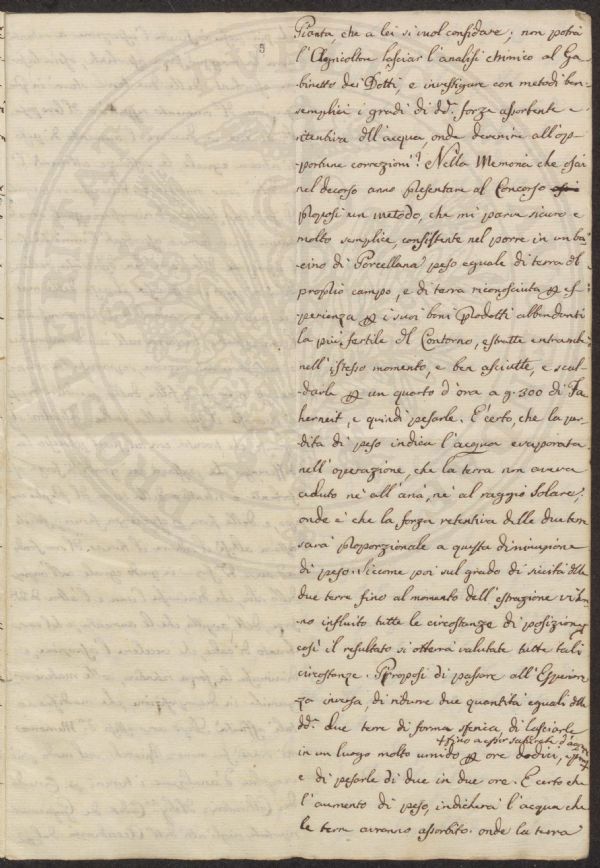 5
Pianta, che a lei si vuol confidare; non potrà
l'Agricoltore lasciar l'analisi chimico al Ga-
binetto dei Dotti, e investigare con metodi ben
semplici i gradi di dd. forza assorbente e
ritentiva dell'acqua, onde devenire all'op-
portune correzioni? Nella Memoria che osai
nel decorso anno presentare al Concorso osai
proposi un metodo, che mi parve sicuro e
molto semplice, consistente nel porre in un ba-
cino di Porcellana peso eguale di terra del
proprio campo, e di terra riconosciuta p es-
perienza p i suoi boni Prodotti abbondanti
la più fertile del Contorno, estratte entrambe
nell'istesso momento, e ben asciutte, e scal-
darle p un quarto d'ora a g. 300 di Fa-
herneit, e quindi pesarle. E' certo, che la per-
dita di peso indica l'acqua evaporata
nell'operazione, che la terra non aveva
ceduto nè all'aria, nè al raggio Solare;
onde è che la forza retentiva delle due terre
sarà proporzionale a questa diminuzione
di peso. Siccome poi sul grado di siccità delle
due terre fino al momento dell'estrazione v'han-
no influito tutte le circostanze di posizione
così il resultato si otterrà valutate tutte tali
circostanze. Proposi di passare all'Esperien-
za inversa, di ridurre due quantità eguali delle
dd. due terre di forma sferica, di lasciarle
+ fino a esser saturate d'acqua
in un luogo molto umido p ore dodici,
e di pesarle di due in due ore. E certo che
l'aumento di peso, indicherà l'acqua che
le terre avranno assorbito. onde la terra